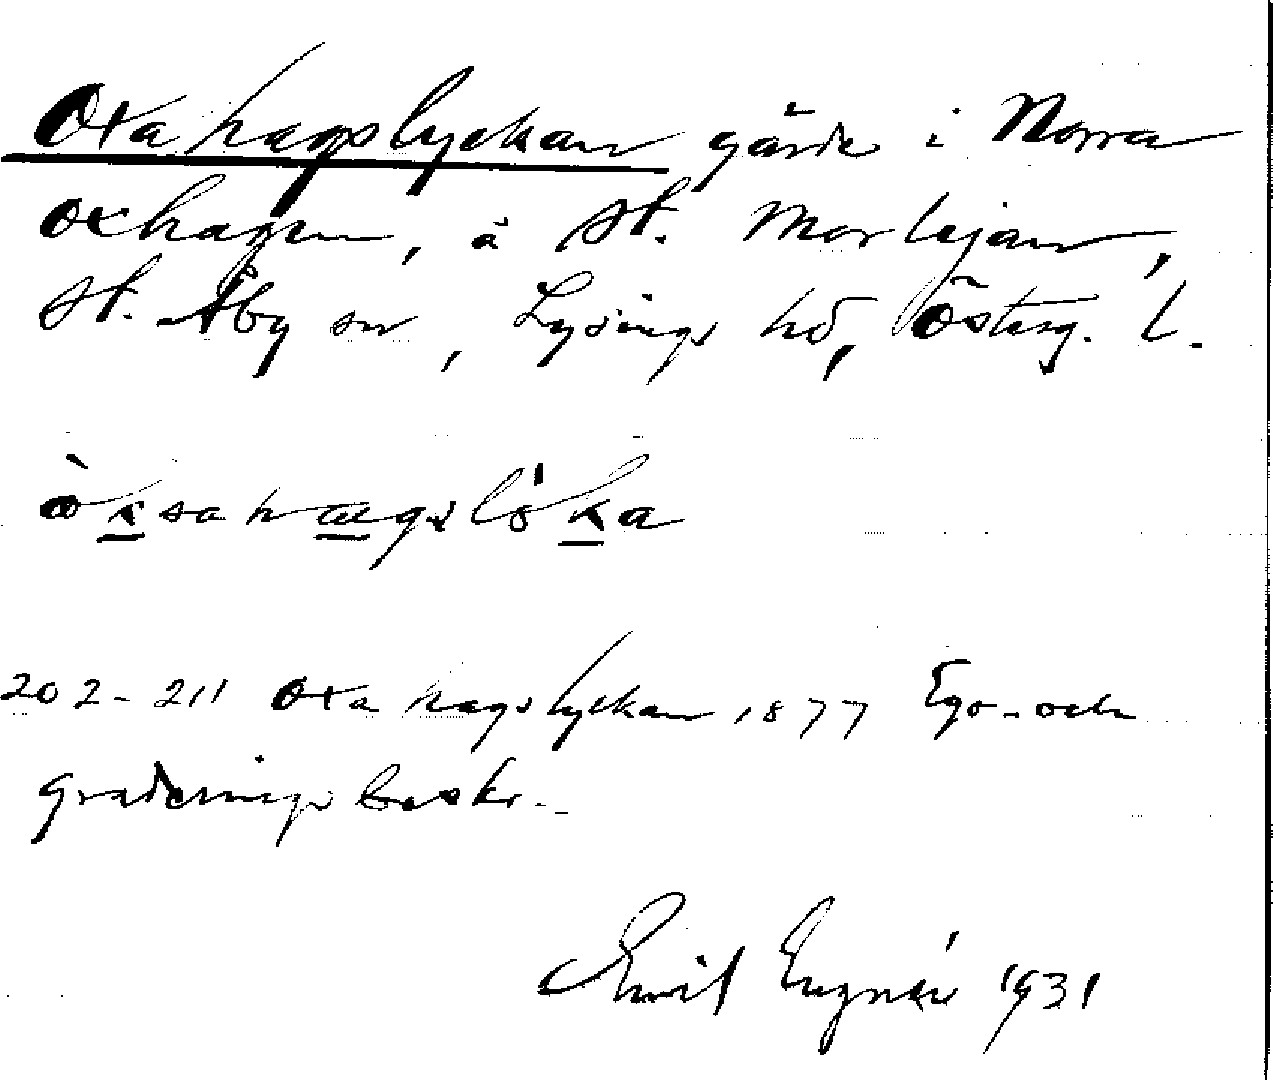 Oxahagslyckan gärde i Norra
oxhagen, å St. Morlejan,
St. Åby sn, Lysings hd, Österg. l.
òksahagslöka
202-211 Oxahagslyckan 1877 Ego- och
graderingsbeskr.
Emil Engnér 1931